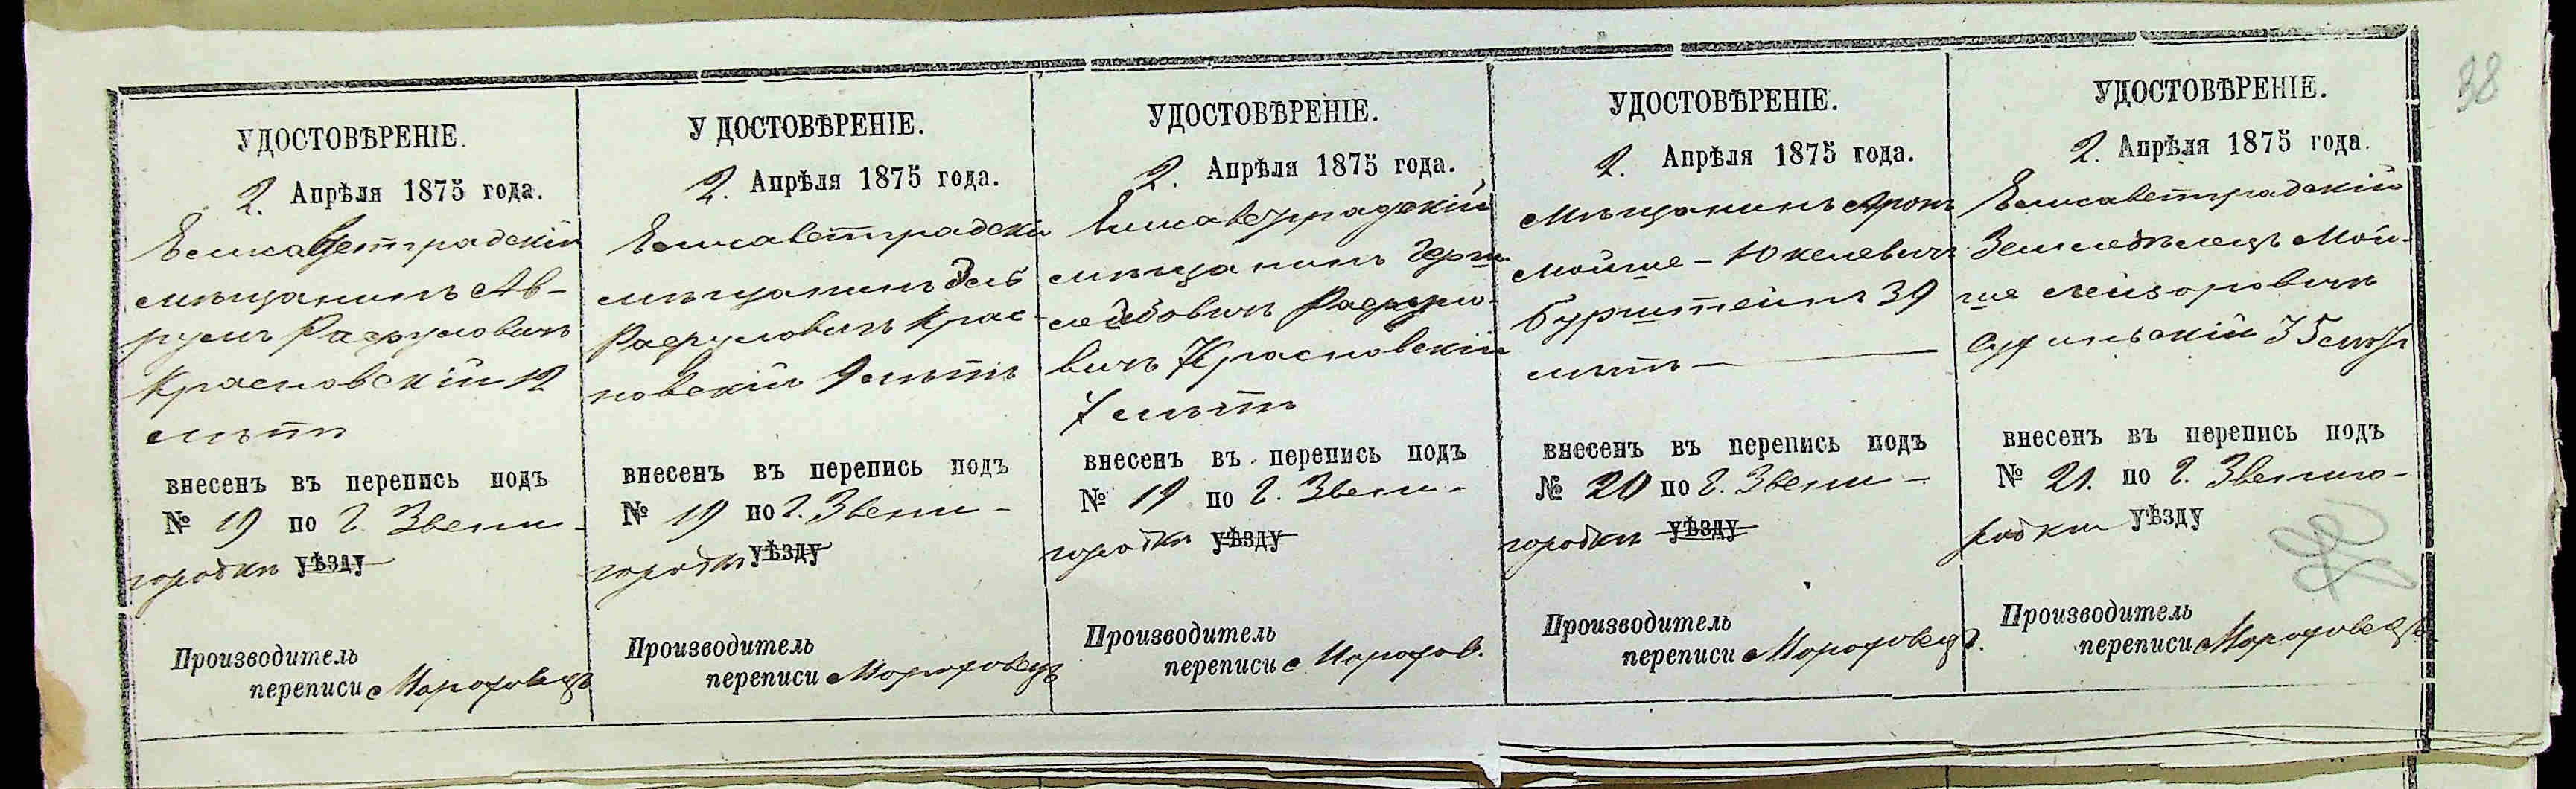 38
УДОСТОВѢРЕНІЕ.
2. Апрѣля 1875 года.
Елисаветградскій
мѣщанинъ Ав-
румъ
Красновскій 12
лѣтъ
внесенъ въ перепись подъ
№ 19 по г. Звени-
городки уѣзду
Производитель
переписи
УДОСТОВѢРЕНІЕ.
2. Апрѣля 1875 года.
Елисаветградскій
мѣщанинъ
Крас-
новскій 9 лѣтъ
внесенъ въ перепись подъ
№ 19 по г. Звени-
городки уѣзду
Производитель
переписи
УДОСТОВѢРЕНІЕ.
2. Апрѣля 1875 года.
Елисаветградскій
мѣщанинъ Герш
вичъ Красновскій
7 лѣтъ
внесенъ въ перепись подъ
№ 19 по г. Звени-
городки уѣзду
Производитель
переписи
УДОСТОВѢРЕНІЕ.
2. Апрѣля 1875 года.
Мѣщанинъ Аронъ
Мойше-Юкелевичъ
Бурштейнъ 39
лѣтъ
внесенъ въ перепись подъ
№ 20 по г. Звени-
городки уѣзду
Производитель
переписи
УДОСТОВѢРЕНІЕ.
2. Апрѣля 1875 года.
Елисаветградскій
Земледѣлецъ Мой-
ше Лейзоровичъ
35 лѣтъ
внесенъ въ перепись подъ
№ 21. по г. Звениго-
родки уѣзду
Производитель
переписи